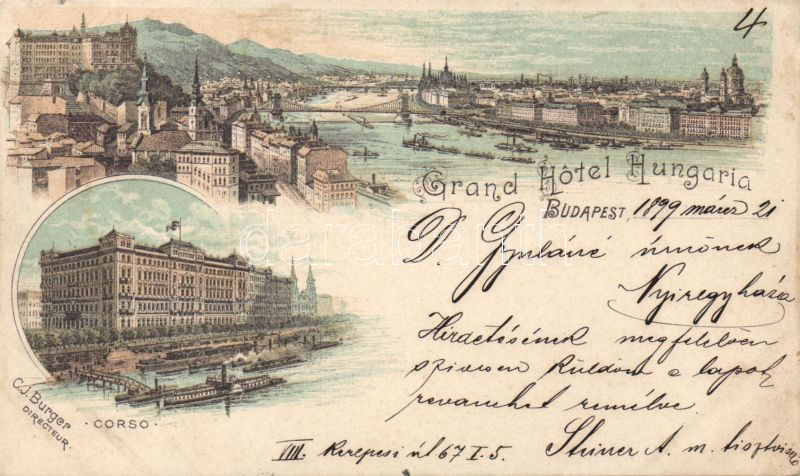 4
Grand Hôtel Hungaria
BUDAPEST, 1899 márcz 21
D. Gyuláné úrnőnek
Nyiregyháza
Hirdetésének megfelelően
szivesen küldöm e lapot
revanchet remélve.
VIII. Kerepesi út 67 I. 5. Steiner A. m. tisztviselő
C.J. Burger
DIRECTEUR.
· CORSO ·
darabanth